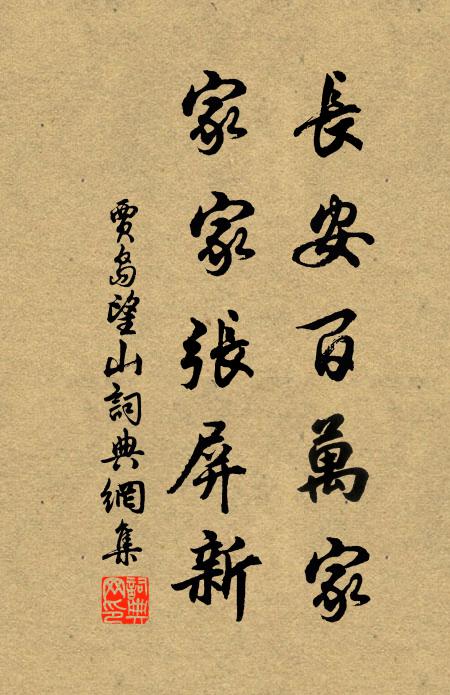 長安百萬家
家家張屏新
賈島望山詞典網集
詞典网印